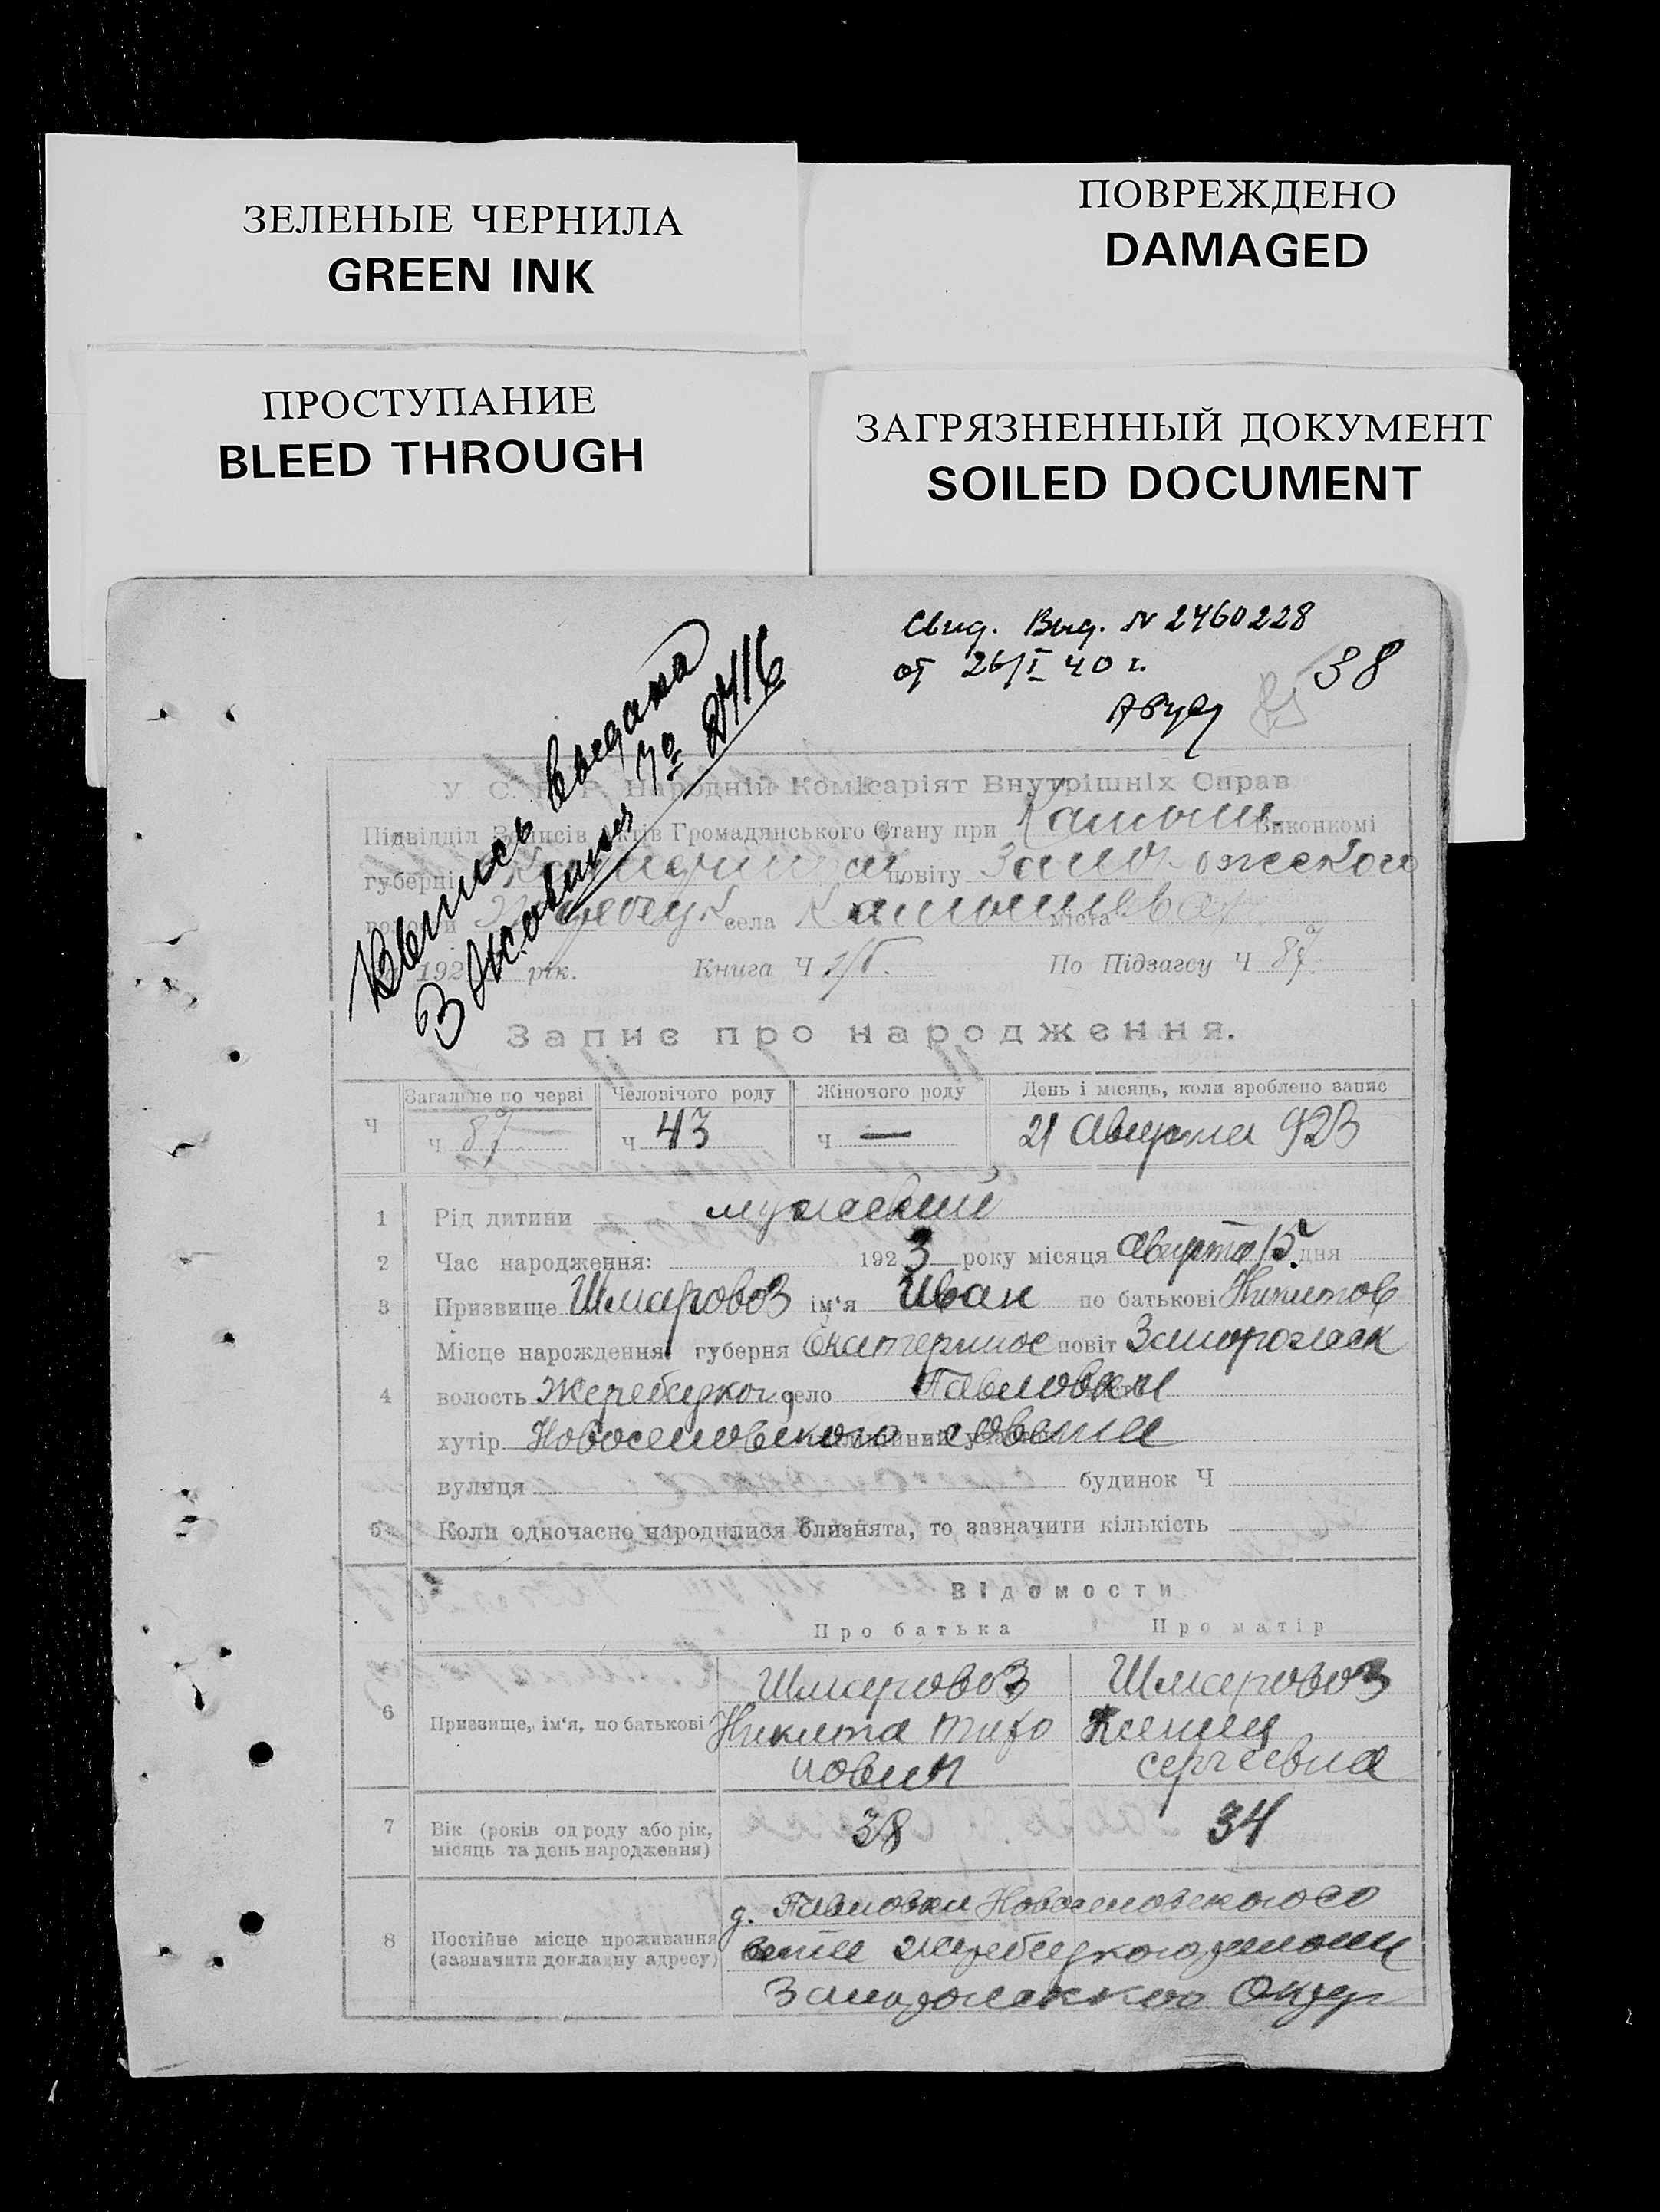 ЗЕЛЕНЫЕ ЧЕРНИЛА
GREEN INK
ПОВРЕЖДЕНО
DAMAGED
ПРОСТУПАНИЕ
BLEED THROUGH
ЗАГРЯЗНЕННЫЙ ДОКУМЕНТ
SOILED DOCUMENT
Свид. Выд. N 2460228
от 26/I 40 г.
38
Выпись выдана
З Жовтня 2416
У С. Р. Р. Народній Комісаріят Внутрішніх Справ
Підвідділ Записів Актів Громадянського Стану при Камыш. Виконкомі
губерні повіту
волости села міста
192 рік. Книга Ч По Підзагсу Ч 87
Запис про народження.
Загальне по черзі Человічого роду Жіночого роду День і місяць, коли зроблено запис
Ч Ч 87 Ч 43 Ч — 21 Августа 923
1 Рід дитини мужеский
2 Час народження: 1923 року місяця Августа 15 дня
3 Призвище Шмаровоз ім'я Иван по батькові Никитов
Місце нарождення: губерня Екатеринос повіт Запорожск
4 волость Жеребецкой село Павловки
хутір Новоселовского совета
вулиця будинок Ч
5 Коли одночасно народилися близнята, то зазначити кількість
Відомости
Про батька Про матір
6 Призвище, ім'я, по батькові
Шмаровоз Шмаровоз
Никита Тихо Ксения
нович Сергеевна
7 Вік (років од роду або рік, місяць та день народження) 38 34
8 Постійне місце проживання (зазначити докладну адресу)
д. Павловки Новоселовского со
вета Жеребецкого
Запорожского Округ